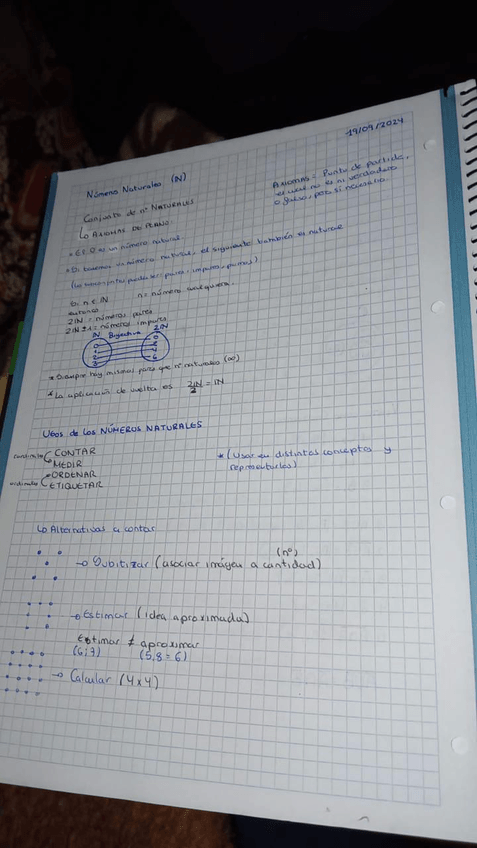 19/09/2024
Números Naturales (ℕ)
AXIOMAS = Punto de partida,
el cual no es ni verdadero
o falso, por si necesario.
Conjunto de nº NATURALES
↳ AXIOMAS DE PEANO:
* El 0 es un número natural.
* Si tenemos un número natural, el siguiente también es natural
(La sucesión puede ser: pares, impares, primos)
Si n ∈ ℕ n = número cualquiera.
entonces
2ℕ = números pares
2ℕ±1 = números impares
ℕ Biyectiva 2ℕ
* Siempre hay mismos pares que nº naturales (∞)
* La aplicación de vuelta es 2ℕ/2 = ℕ
Usos de los NÚMEROS NATURALES
cardinales CONTAR
MEDIR
ordinales ORDENAR
ETIQUETAR
* (Usar en distintos conceptos y
representarlos)
↳ Alternativas a contar
(nº)
→ Subitizar (asociar imágen a cantidad)
→ Estimar (idea aproximada)
Estimar ≠ aproximar
(6;7) (5,8 = 6)
→ Calcular (4x4)